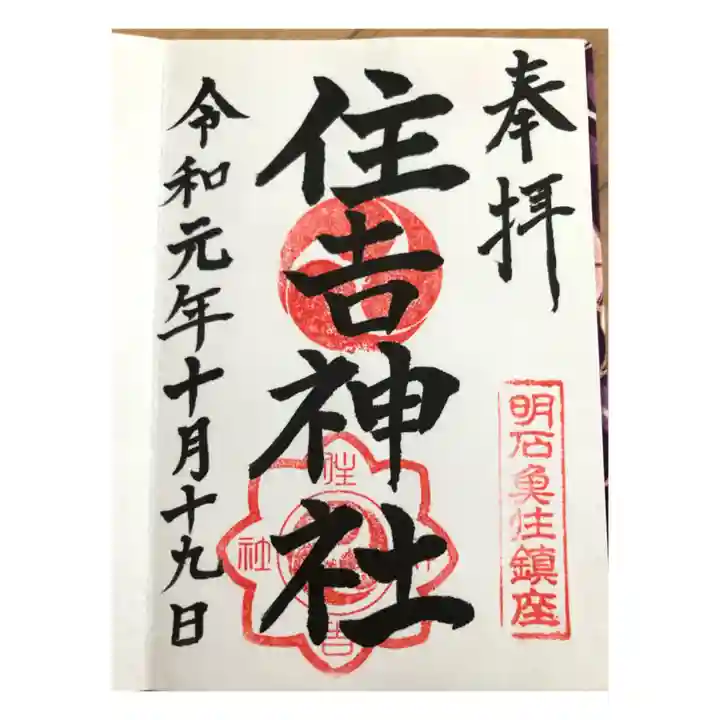 奉拝
明石魚住鎮座
住吉神社
住吉神社
令和元年十月十九日